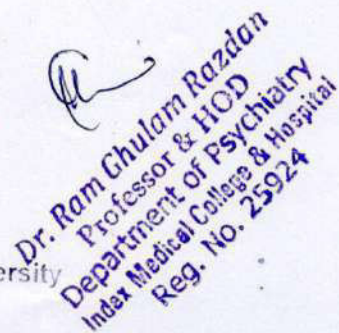 Dr. Ram Ghulam Razdan
Professor & HOD
Department of Psychiatry
Index Medical College & Hospital
Reg. No. 25924
ersity